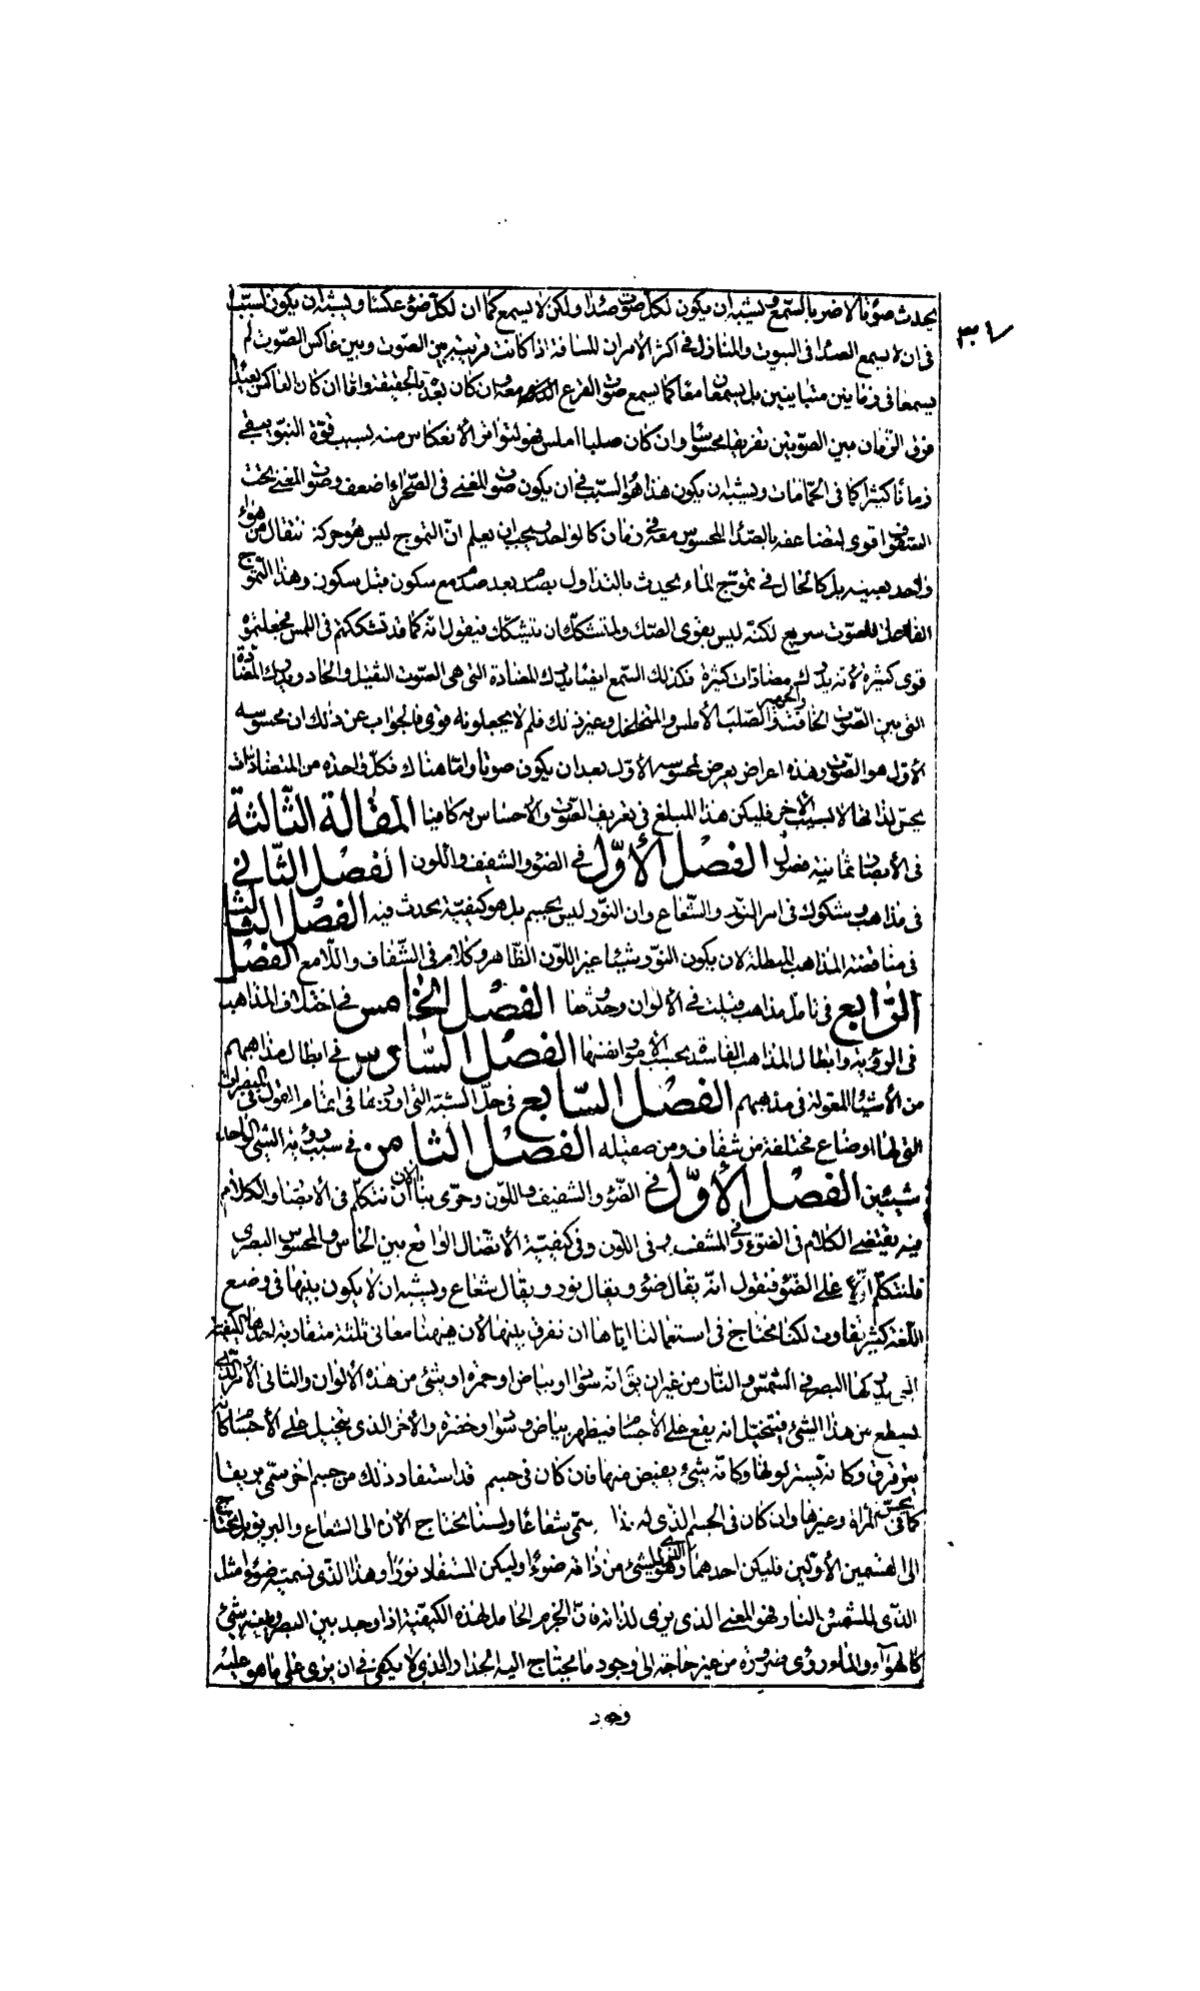 ٣٠٦
يحدث صوتا لا ضربا بالسمع ويشبه ان يكون لكل صوت صدا ولكن لا يسمع كما ان لكل ضوء عكسا ويشبه ان يكون السبب
فى ان لا يسمع الصدا فى البيوت والمنازل فى اكثر الأمر ان المسافة اذا كانت قريبة بين الصوت وبين عاكس الصوت لم
يسمعا فى زمانين متباينين بل يسمعان معا كما يسمع صوت القرع معه وان كان بعده بالحقيقة واما ان كان العاكس بعيدا
فرق الزمان بين الصوتين تفريقا محسوسا وان كان صلبا املس فهو لتواتر الأنعكاس منه بسبب قوة النبو يبقى
زمانا كثيرا كما فى الحمامات ويشبه ان يكون هذا هو السبب فى ان يكون صوت المغنى فى الصحراء اضعف وصوت المغنى تحت
السقوف اقوى لتضاعفه بالصدا المحسوس معه فى زمان كالواحد ويجب ان يعلم ان التموج ليس هو حركة انتقال من هواء
واحد بعينه بل كالحال فى تموج الماء يحدث بالتداول بصدم بعد صدم مع سكون قبل سكون وهذا التموج
الفاعل للصوت سريع لكنه ليس يقوى الصك ولمتشكك ان يتشكك فيقول انه كما قد تشككتم فى اللمس فجعلتموه
قوى كثيرة لأنه يدرك مضادات كثيرة فكذلك السمع ايضا يدرك المضادة التى هى الصوت الثقيل والحاد ويدرك المضادة
التى بين الصوت الخافت والجهير والصلب الأملس والمتخلخل وغير ذلك فلم لا يجعلونه قوى فالجواب عن ذلك ان محسوسه
الأول هو الصوت وهذه اعراض يعرض لمحسوسه الأول بعد ان يكون صوتا واما هناك فكل واحدة من المتضادات
يحس لذاتها لا بسبب الأخر فليكن هذا المبلغ فى تعريف الصوت والأحساس به كافيا المقالة الثالثة
فى الأبصار ثمانية فصول الفصل الأول فى الضوء والشفيف واللون الفصل الثانى
فى مذاهب وشكوك فى امر النور والشعاع وان النور ليس بجسم بل هو كيفية يحدث فيه الفصل الثالث
فى مناقضة المذاهب المبطلة لان يكون النور شيئا غير اللون الظاهر وكلام فى الشفاف واللامع الفصل
الرابع فى تامل مذاهب قيلت فى الألوان وحدوثها الفصل الخامس فى اختلاف المذاهب
فى الرؤية وابطال المذاهب الفاسدة بحسب الأمور انفسها الفصل السادس فى ابطال مذاهبهم
من الأشياء المقولة فى مذهبهم الفصل السابع فى حل الشبه التى اوردوها فى اتمام القول فى المبصرات
التى لها اوضاع مختلفة من شفاف ومن صقيله الفصل الثامن فى سبب رؤية الشئ الواحد
شيئين الفصل الأول فى الضوء والشفيف واللون وحرى بنا الان ان نتكلم فى الأبصار والكلام
فيه يقتضى الكلام فى الضوء وفى المشف وفى اللون وفى كيفية الأتصال الواقع بين الحاس والمحسوس البصرى
فلنتكلم اولا على الضوء فنقول انه يقال ضوء ويقال نور ويقال شعاع ويشبه ان لا يكون بينها فى وضع
اللغة كثير تفاوت لكنا نحتاج فى استعمالنا اياها ان نفرق بينها لأن هيهنا معانى ثلثة متقاربة احدها الكيفية
التى يدركها البصر فى الشمس والنار من غير ان يق انه سواد او بياض او حمرة او شئ من هذه الألوان والثانى الأمر الذى
يسطع من هذا الشئ فيتخيل انه يقع على الأجسام فيظهر بياض وسواد وخضرة والأخر الذى يتخيل على الأجسام كانه
يترقرق وكانه يستر لونها وكانه شئ يفيض منها فان كان فى جسم قد استفاد ذلك من جسم اخر سمى بريقا
كما يحس فى المرآة وغيرها وان كان فى الجسم الذى له بذا سمى شعاعا ولسنا نحتاج الآن الى الشعاع والبريق بل نحتاج
الى القسمين الأولين فليكن احدهما وهو الذى للشئ من ذاته ضوءا وليكن المستفاد نورا وهذا الذى نسميه ضوءا مثل
الذى للشمس والنار فهو المعنى الذى يرى لذاته فان الجرم الحامل لهذه الكيفية اذا وجد بين البصر وبينه شئ
كالهواء والماء رؤى ضرورة من غير حاجة الى وجود ما يحتاج اليه الجدار الذى لا يكفى فى ان يرى على ما هو عليه
وجود